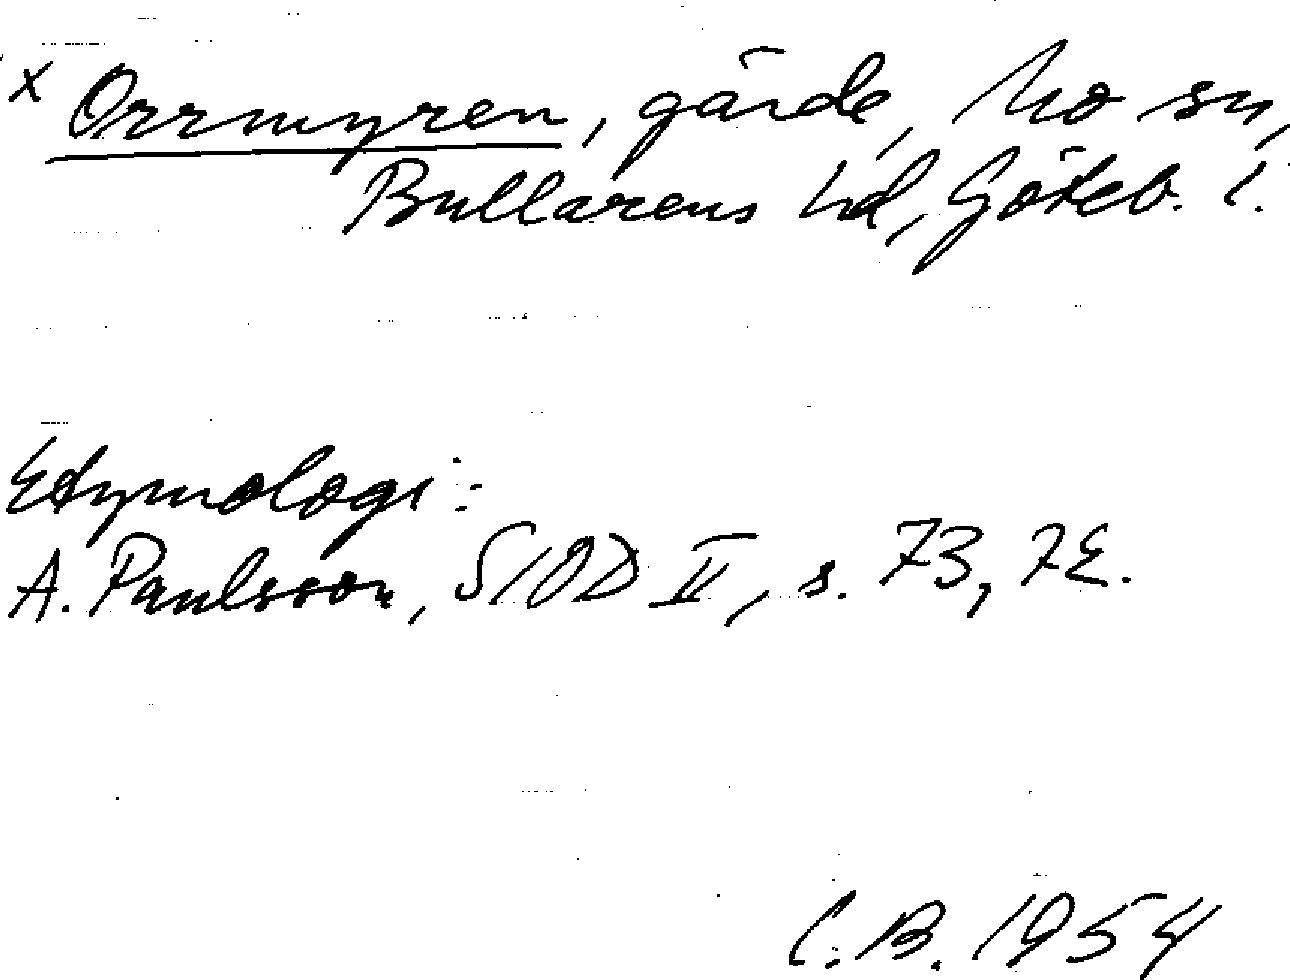 x Orrmyren, gärde, Mo sn,
Bullarens hd, Göteb. l.
Etymologi:
A. Paulsson, SIOD II, s. 73, 78.
C. B. 1954